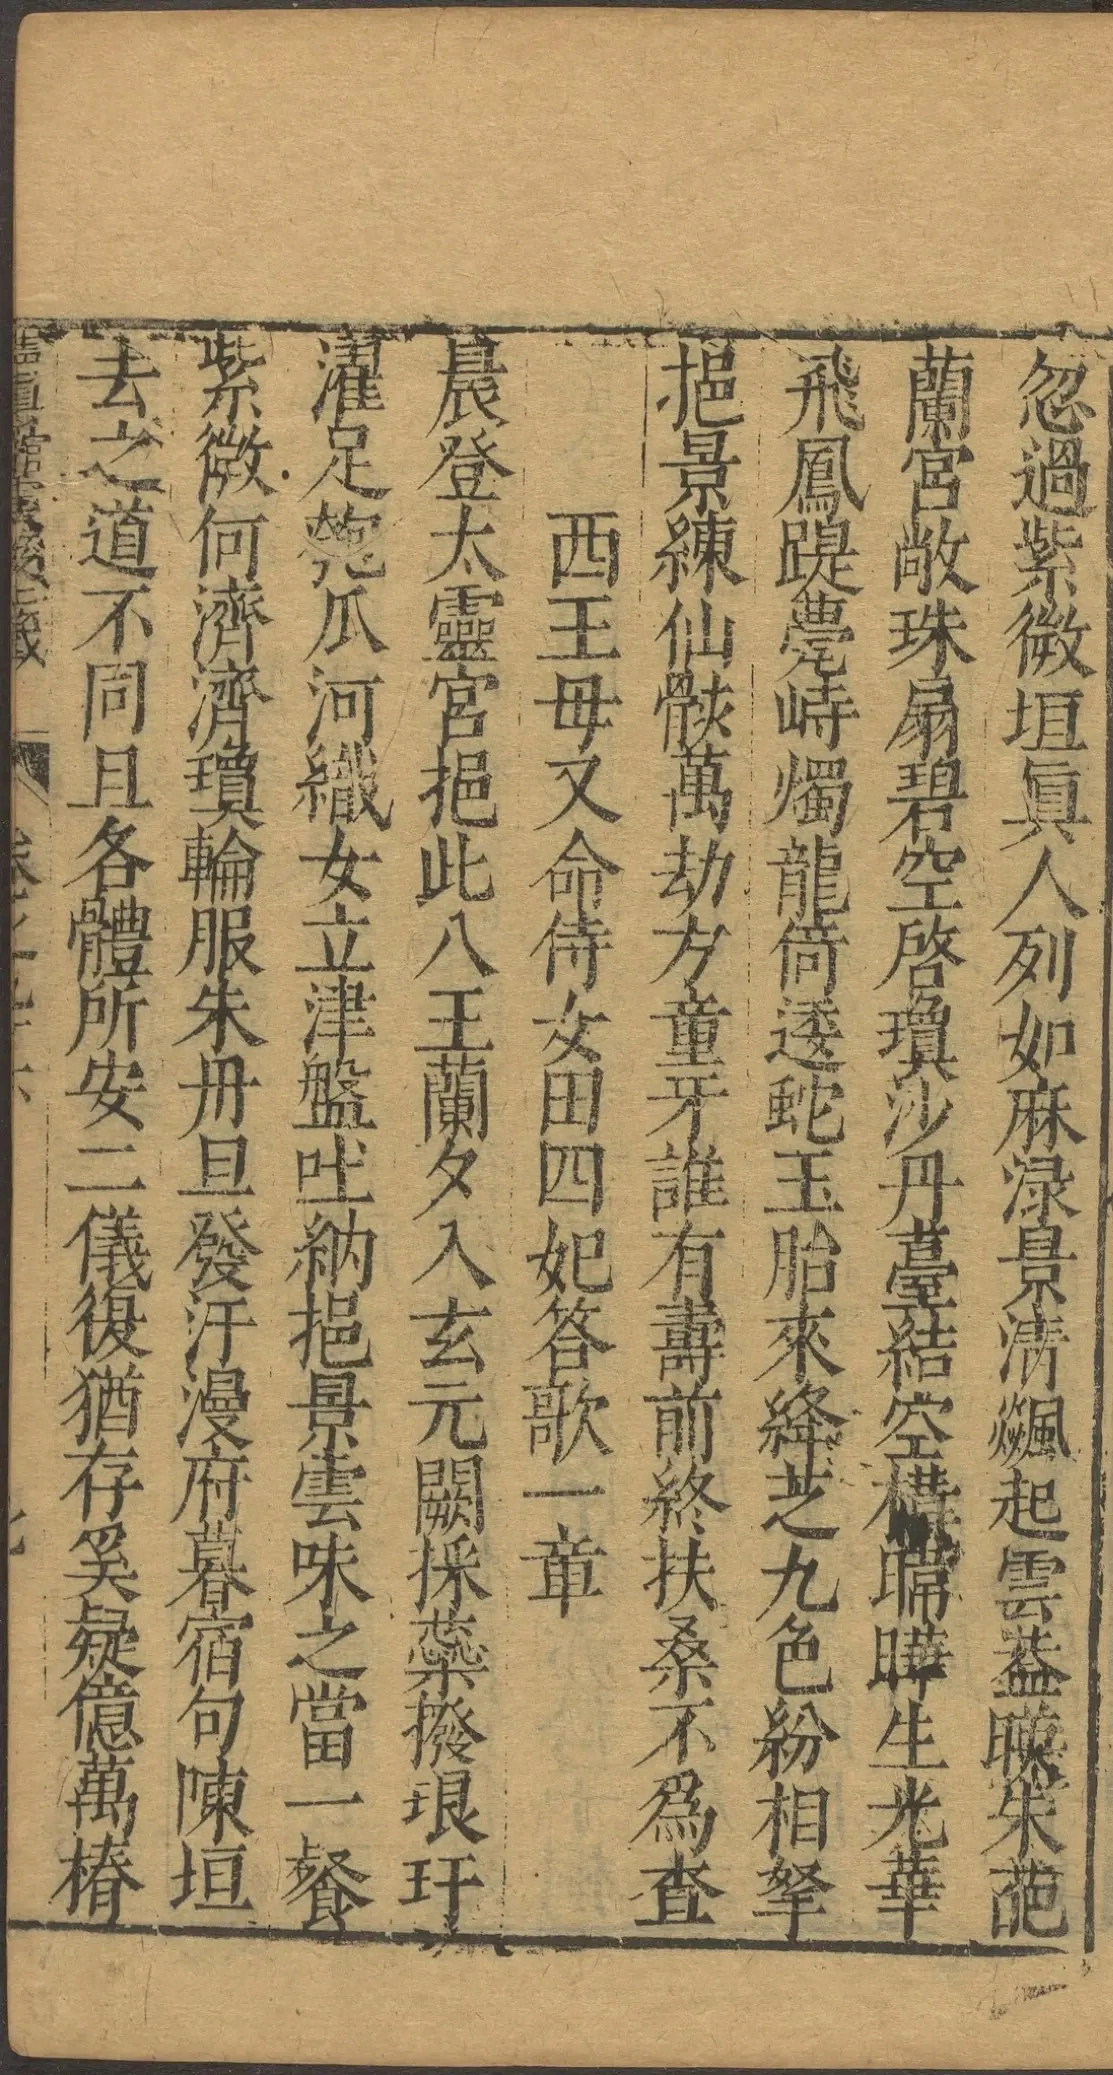 忽過紫微垣眞人列如麻渌景清飈起雲蓋暎朱葩
蘭宮敞珠扇碧空啓瓊沙丹臺結空構暐曄生光華
飛鳳踶甍峙燭龍倚逶蛇玉胎來絳芝九色紛相拏
挹景練仙骸萬劫方童牙誰有壽前終扶桑不爲查
西王母又命侍女田四妃答歌一章
晨登太靈宮挹此八王蘭夕入玄元闕採蘂掇琅玕
濯足匏瓜河織女立津盤吐納挹景雲味之當一餐
紫微何濟濟瓊輪服朱丹旦發汗漫府暮宿句陳垣
去之道不同且各體所安二儀復猶存奚疑億萬椿